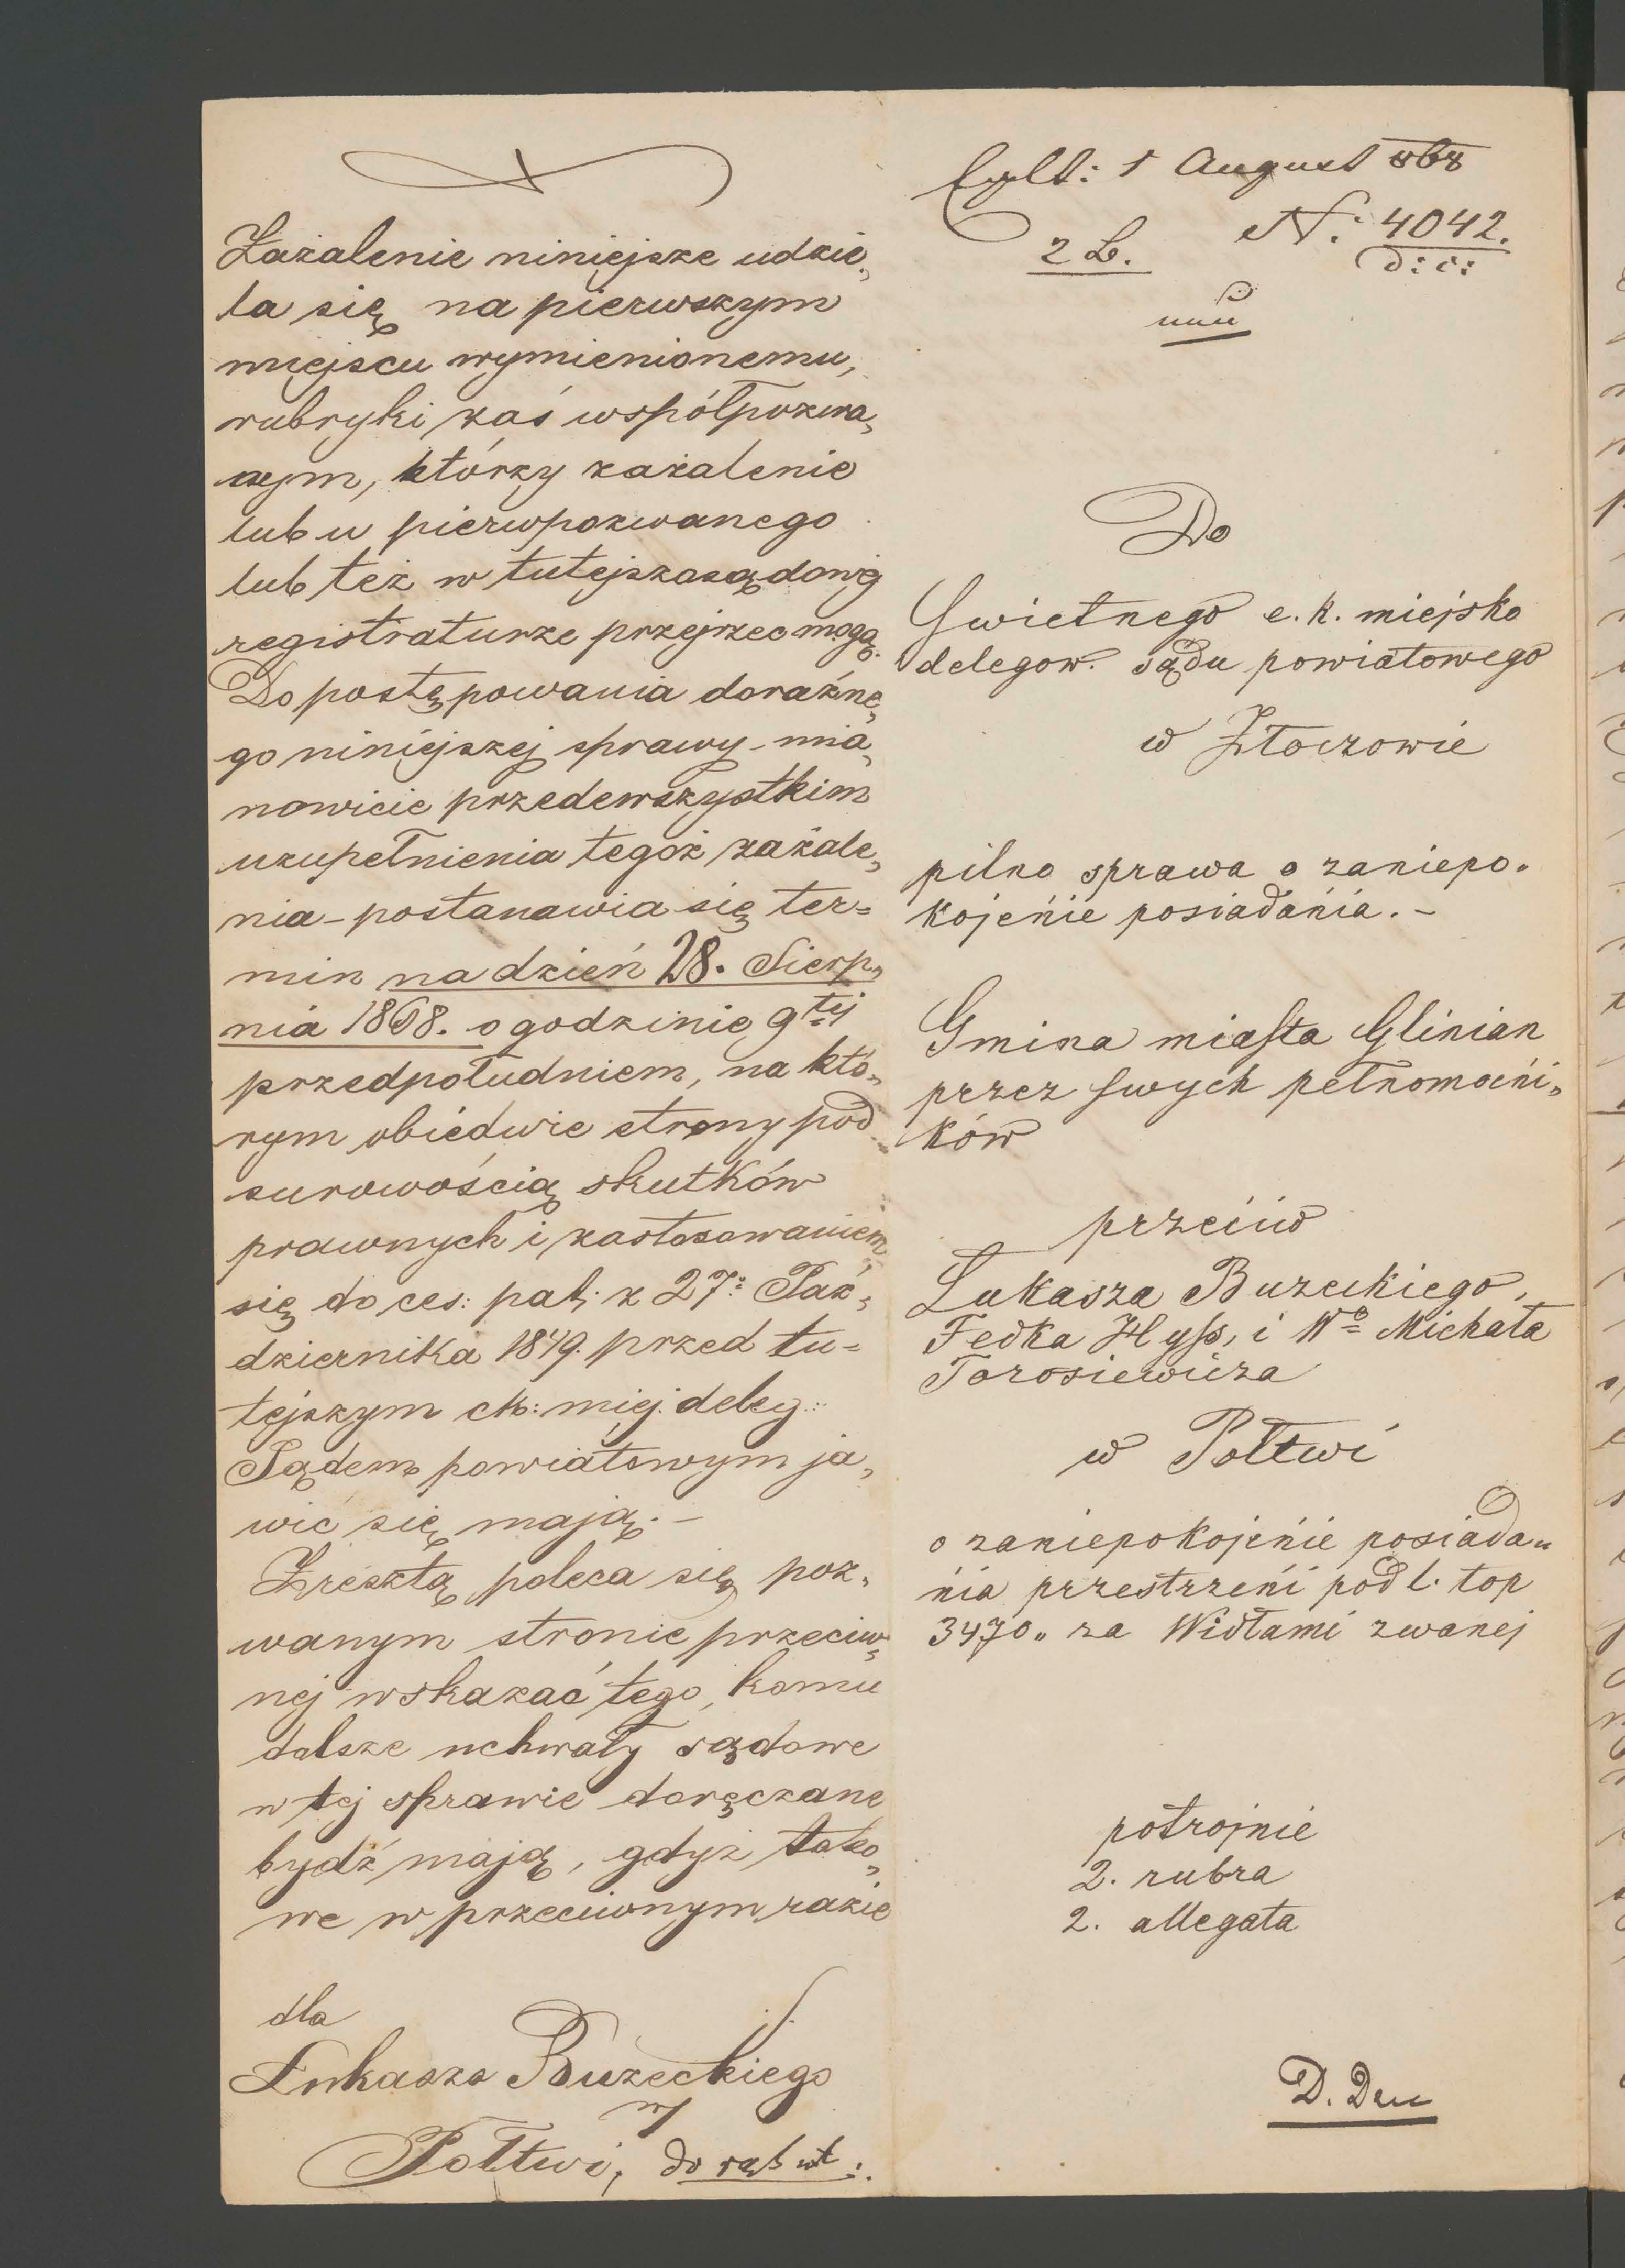 Zażalenie niniejsze udzie„
la się na pierwszym
miejscu wymienionemu,
rubryki zaś współpozwa„
nym, którzy zażalenie
lub u pierwpozwanego
lub też w tutejszosądowej
registraturze przejrzeć mogą.
Do postępowania doraźne„
go niniejszej sprawy - mia„
nowicie przedewszystkim
uzupełnienia tegoż zażale„
nia - postanawia się ter=
min na dzień 28. Sierp„
nia 1868. o godzinie 9tej
przedpołudniem, na któ„
rym obiedwie strony pod
surowością skutków
prawnych i zastosowaniem
się do ces: pat: z 27: Paź„
dziernika 1849. przed tu=
tejszym ck: miej. deleg:
Sądem powiatowym ja„
wić się mają. -
Zresztą poleca się poz„
wanym stronie przeciw„
nej wskazać tego, komu
dalsze uchwały sądowe
w tej sprawie doręczane
bydź mają, gdyż tako„
we w przeciwnym razie
dla
Łukasza Buzeckiego
w
Połtwi,
1 August 868
N: 4042.
2 B.
Do
Swietnego c. k. miejsko
delegow. sądu powiatowego
w Złoczowie
pilna sprawa o zaniepo„
kojenie posiadania. -
Gmina miasta Glinian
przez swych pełnomocni„
ków
przeciw
Łukasza Buzeckiego,
Fedka Hyss, i Wo Michała
Torosiewicza
w Połtwi
o zaniepokojenie posiada„
nia przestrzeni pod l. top
3470„ za Widłami zwanej
potrojnie
2. rubra
2. allegata